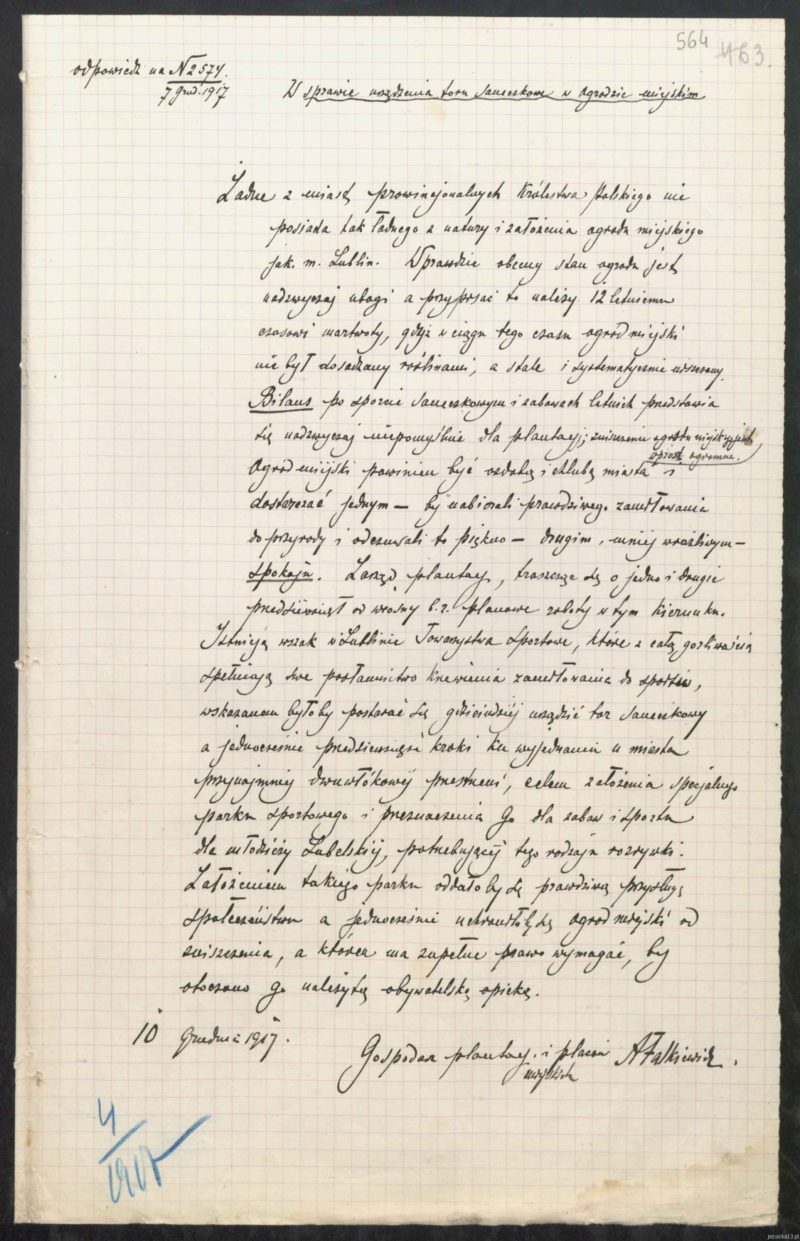 564 463.
odpowiedź na N 2574.
7 grud. 1917
W sprawie urządzenia toru saneczkow. w Ogrodzie miejskim
Żadne z miast prowincjonalnych Królestwa Polskiego nie
posiada tak ładnego z natury i założenia ogrodu miejskiego
jak m. Lublin. Wprawdzie obecny stan ogrodu jest
nadzwyczaj ubogi a przypisać to należy 12 letniemu
czasowi martwoty, gdyż w ciągu tego czasu ogród miejski
nie był dosadzany roślinami, a stale i systematycznie niszczony.
Bilans po sporcie saneczkowym i zabawach letnich przedstawia
się nadzwyczaj niepomyślnie dla plantacji; zniszczenie ogrodu miejskiego jest
wprost ogromne.
Ogród miejski powinien być ozdobą i chlubą miasta i
dostarczać jednym – by nabierali prawdziwego zamiłowania
do przyrody i odczuwali to piękno – drugim, mniej wrażliwym –
spokoju. Zarząd plantacj, troszcząc się o jedno i drugie
przedsiewziął od wiosny b.r. planowe roboty w tym kierunku.
Istnieją wszak w Lublinie Towarzystwa Sportowe, które z całą gorliwością
spełniają swe posłannictwo krzewienia zamiłowania do sportu,
wskazanem byłoby postarać się gdzieindziej urządzić tor saneczkowy
a jednocześnie przedsiewziąść kroki ku wyjednaniu u miasta
przynajmniej dwuwłókowej przestrzeni, celem założenia specjalnego
parku sportowego i przeznaczenia Go dla zabaw i sportu
dla młodzieży Lubelskiej, potrzebującej tego rodzaju rozrywki.
Założeniem takiego parku oddałoby się prawdziwą przysługę
społeczeństwu a jednocześnie uchroniłoby się ogród miejski od
zniszczenia, a który ma zupełne prawo wymagać, by
otoczono go należytą obywatelską opieką.
10 Grudnia 1917.
Gospodarz plantacj. i placów
miejskich
4/1917
jezuicka13.pl